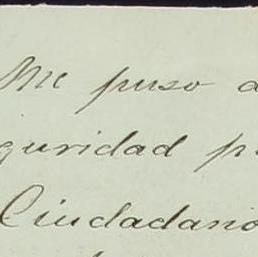 Me puso a
guridad p
Ciudadano